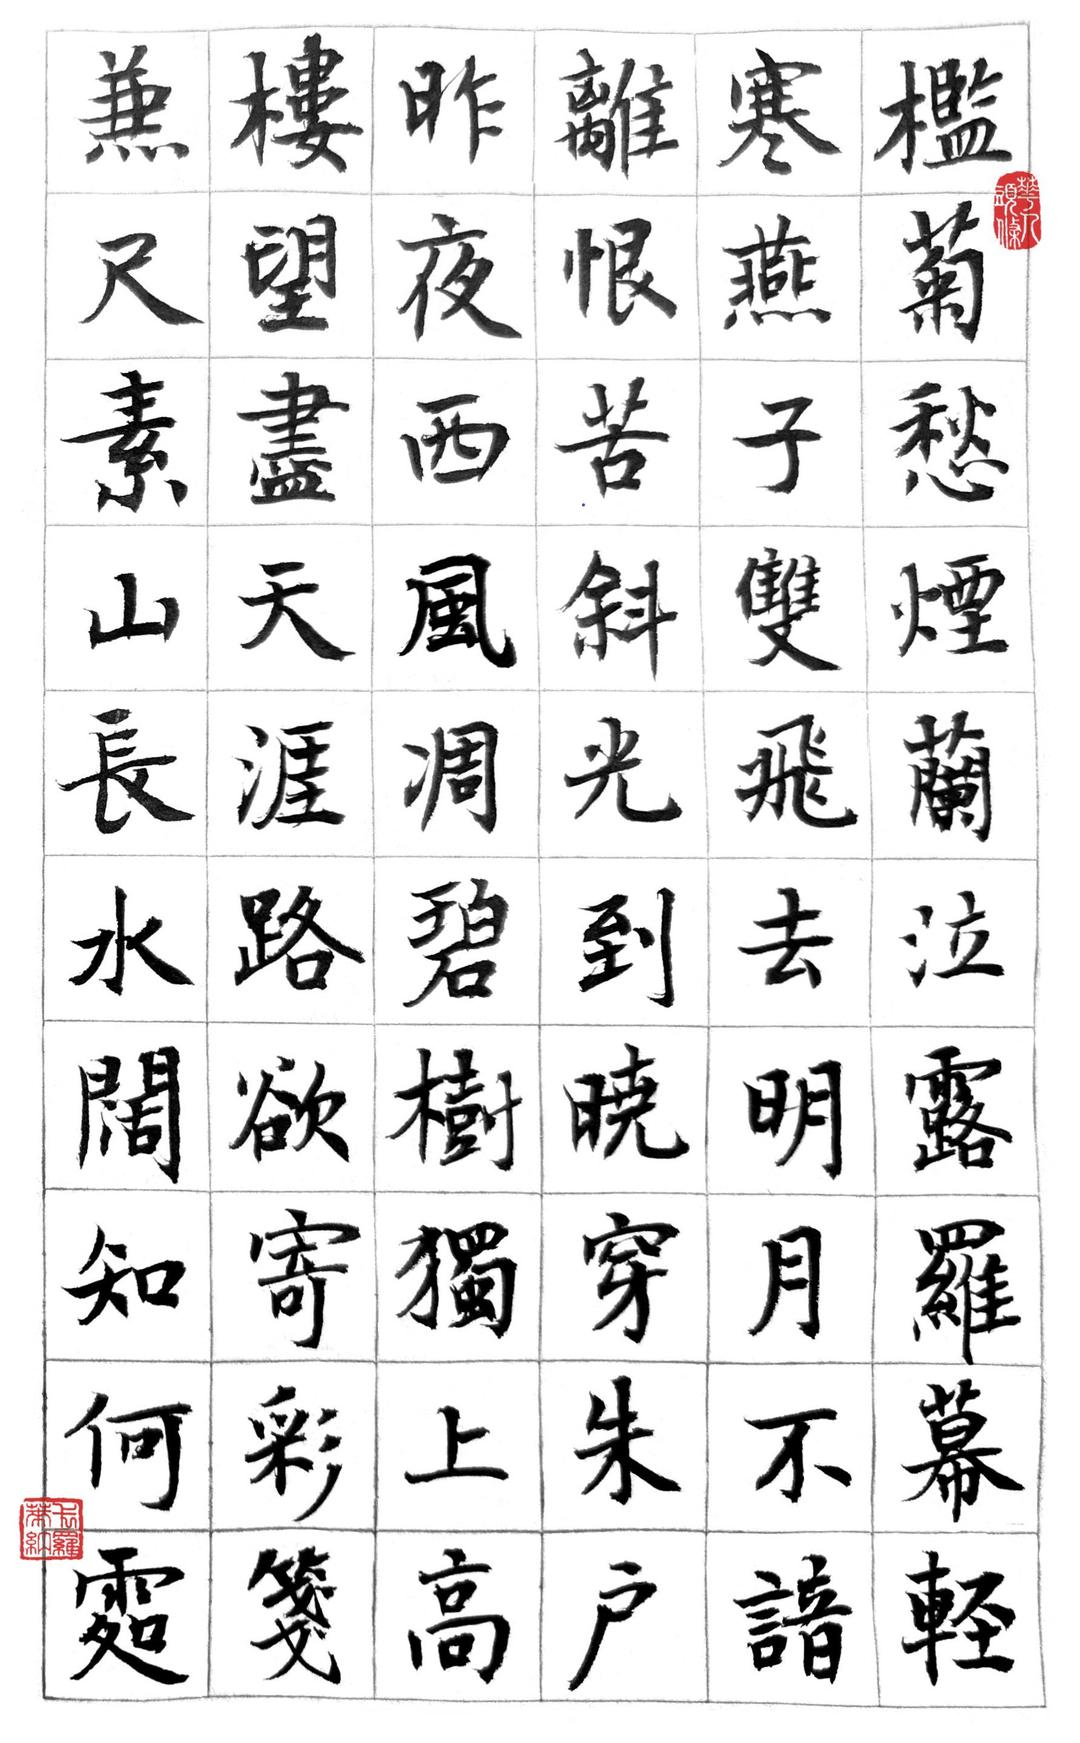 檻菊愁煙蘭泣露羅幕輕
寒燕子雙飛去明月不諳
離恨苦斜光到曉穿朱戶
昨夜西風凋碧樹獨上高
樓望盡天涯路欲寄彩箋
兼尺素山長水闊知何處